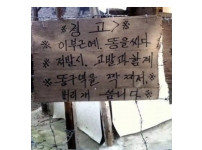 경고
※ 이부근에 똥을싸다
※ 적발시, 고발과함께
※ 똥구멍을 꽉 찢어
※ 버리게 습니다 ※